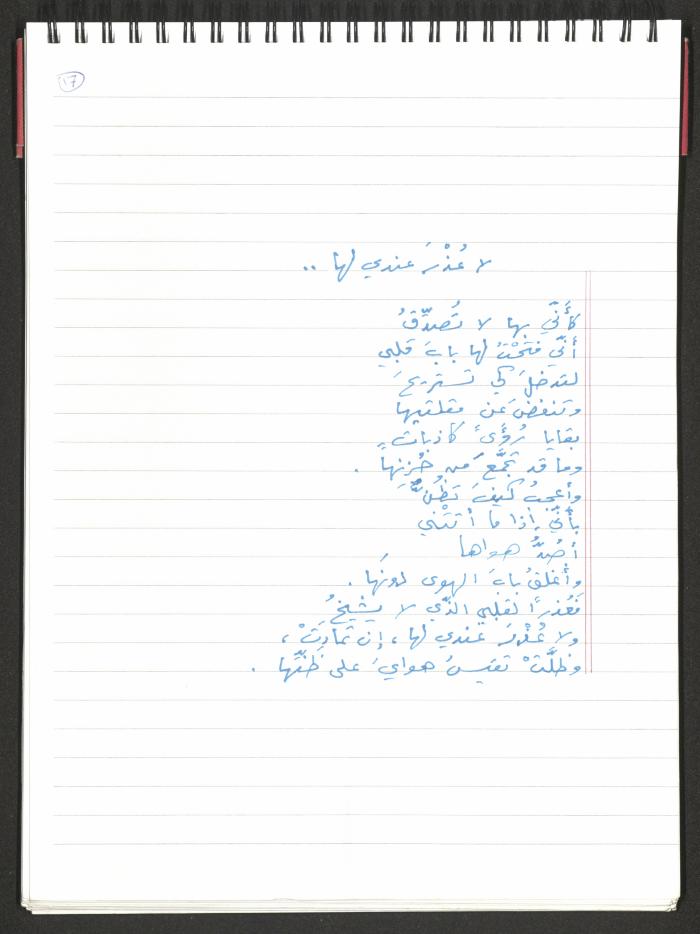 ١٧
لا عُذْرَ عندي لها ..
كأنّي بها لا تُصدِّقُ
أنّي فتحْتُ لها بابَ قلبي
لتدخلَ كي تستريحَ
وتنفضَ عن مقلتيها
بقايا رُؤىً كاذباتٍ
وما قد تجمَّع من حُزنِها .
وأعجبُ كيفَ تظُنُّ
بأنّي إذا ما أتتْني
أصُدُّ هواها
وأُغلقُ بابَ الهوى دونَها .
فعُذراً لقلبي الذّي لا يشيخُ
ولا عُذْرَ عندي لها ، إن تمادَتْ ،
وظلَّتْ تقيسُ هوايَ على ظنِّها .